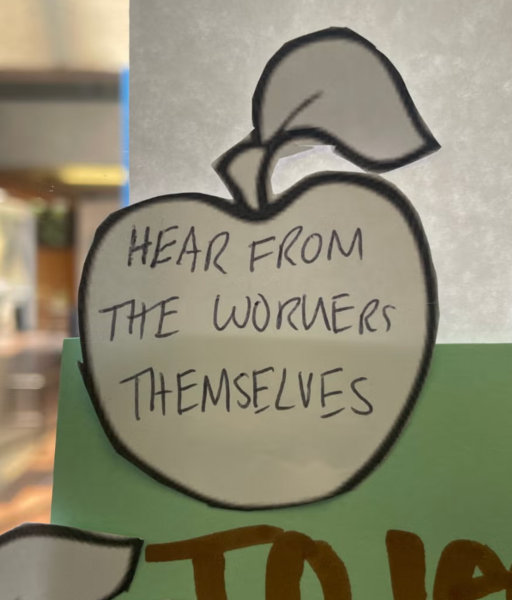 HEAR FROM
THE WORKERS
THEMSELVES
TO